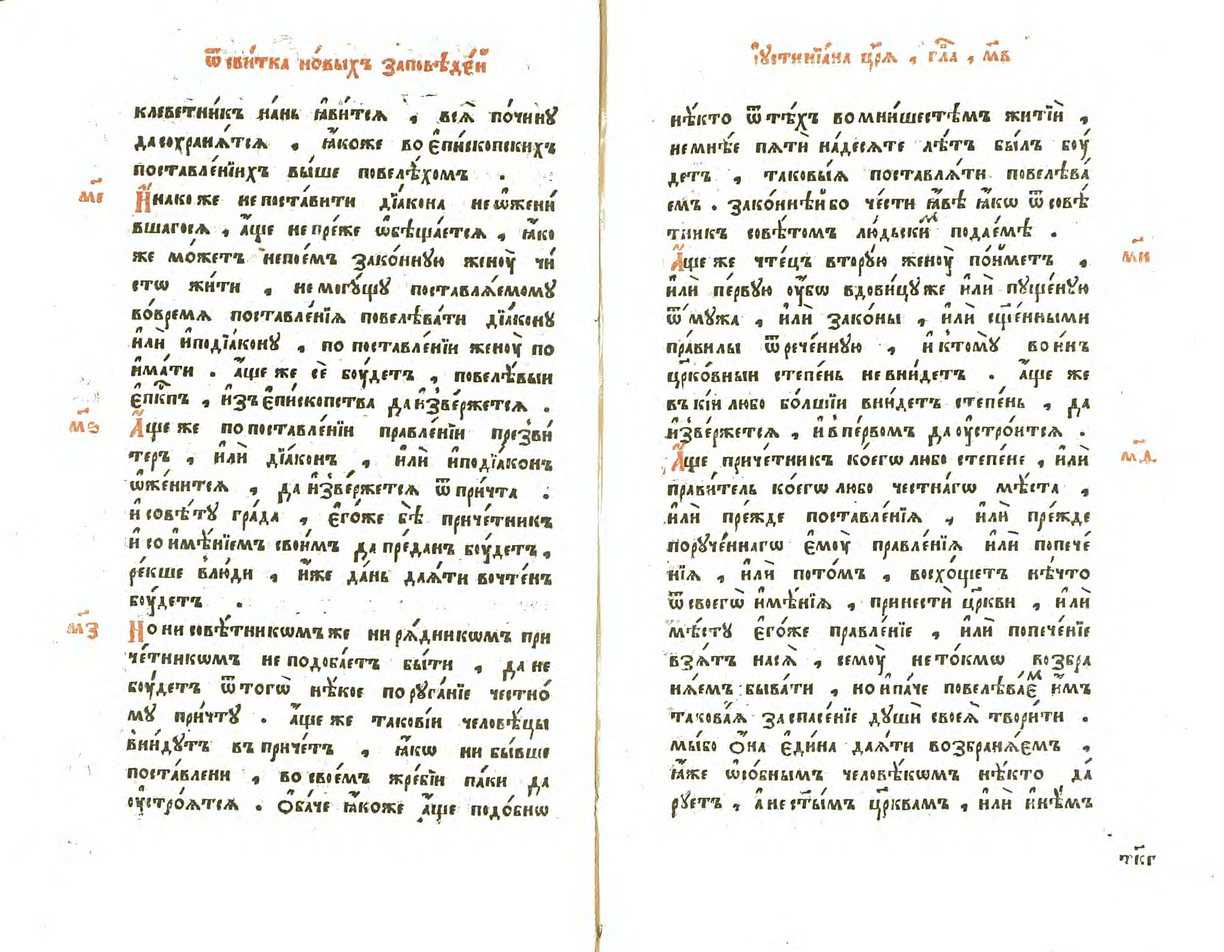 Ѿ свитка но́выхъ заповѣде́й
клеветни́къ на́нь ꙗ҆ви́тсѧ , всѧ̀ по чи́ну
да сохранѧ́тсѧ , ꙗ҆́коже во є҆пи́скопскихъ
поставле́нїихъ вы́ше повелѣ́хомъ .
м҃є
И҆на́ко же не поста́вити дїа́кона не ѡ҆жени́
вшагосѧ , а҆́ще не пре́же ѡ҆бѣща́етсѧ , ꙗ҆́ко
же мо́жетъ непое́мъ зако́нную женꙋ̀ чи́
стѡ жи́ти , не могу́щу поставлѧ́емому
во́времѧ поставле́нїѧ повелѣва́ти дїа́кону
и҆лѝ и҆подїа́кону , по поставле́нїи женꙋ̀ по
има́ти . а҆́ще же сѐ бꙋ́детъ , повелѣ́выи
є҆пⷭ҇кпъ , и҆зъ є҆пи́скопства да и҆зве́ржетсѧ .
м҃ѕ
А҆́ще же по поставле́нїи правле́нїи презви́
теръ , и҆лѝ дїа́конъ , и҆лѝ и҆подїа́конъ
ѡ҆жени́тсѧ , да и҆зве́ржетсѧ ѿ при́чта .
и҆ совѣ́ту гра́да , є҆го́же бѣ̀ приче́тникъ
и҆ со и҆мѣ́нїемъ свои́мъ да пре́данъ бꙋ́детъ ,
ре́кше в лю́ди , и҆́же да́нь даѧ́ти вочте́нъ
бꙋ́детъ .
м҃з
Но ни совѣ́тникѡмъ же ни рѧ́дникѡмъ при
че́тникѡмъ не подоба́етъ бы́ти , да не
бꙋ́детъ ѿ тогѡ̀ нѣ́кое поруга́нїе честно́
му при́чту . а҆́ще же такові́и человѣ́цы
вни́дутъ въ приче́тъ , ꙗ҆́кѡ ни бы́вше
поста́влени , во свое́мъ жре́бїи па́ки да
оу҆стро́ѧтсѧ . Ѻ҆ба́че ꙗ҆́коже а҆́ще подо́бнѡ
І҆устинїа́на цр҃ѧ̀ , гл҃а , м҃в
нѣ́кто ѿ тѣ́хъ во мни́шестѣмъ житїѝ ,
не мнѣ́е пѧтѝ на́десѧте лѣ́тъ бы́лъ бꙋ́
детъ , таковы́ѧ поставлѧ́ти повелѣва́
емъ . зако́ннѣй бо че́сти ꙗ҆́вѣ ꙗ҆́кѡ ѿ совѣ́
тникъ совѣ́томъ лю́дьскимъ подае́мѣ .
м҃и
А҆́ще же чте́цъ втору́ю женꙋ̀ по́йметъ ,
и҆лѝ пе́рвую оу҆́бѡ вдови́цу же и҆лѝ пуще́ную
ѿ му́жа , и҆лѝ зако́ны , и҆лѝ сщ҃е́нными
пра́вилы ѿрече́нную , и҆ ктому̀ во и҆́нъ
цр҃ко́вныи степе́нь не вни́детъ . а҆́ще же
въ кі́и любо бо́лшїи вни́детъ степе́нь , да
и҆зве́ржетсѧ , и҆ в пе́рвомъ да оу҆стро́итсѧ .
м҃ѳ
А҆́ще приче́тникъ ко́егѡ любо степе́не , и҆лѝ
прави́тель ко́егѡ любо че́стнагѡ мѣ́ста ,
и҆лѝ пре́жде поставле́нїѧ , и҆лѝ пре́жде
поруче́ннагѡ є҆мꙋ̀ правле́нїѧ и҆лѝ попече́
нїѧ , и҆лѝ пото́мъ , восхо́щетъ нѣ́что
ѿ своегѡ̀ и҆мѣ́нїѧ , принестѝ цр҃кви , и҆лѝ
мѣ́сту є҆го́же правле́нїе , и҆лѝ попече́нїе
взѧ́тъ на сѧ̀ , семꙋ̀ не то́кмѡ возбра
нѧ́емъ быва́ти , но и҆ па́че повелѣва́ємъ и҆̀мъ
такова́ѧ за спасе́нїе душѝ своеѧ̀ твори́ти .
мы́ бо ѻ҆́на є҆ди́на даѧ́ти возбранѧ́емъ ,
ꙗ҆́же ѡ҆со́бнымъ человѣ́кѡмъ нѣ́кто да́
руетъ , а҆ не ст҃ы́мъ цр҃квамъ , и҆лѝ и҆нѣ́мъ
тк҃г